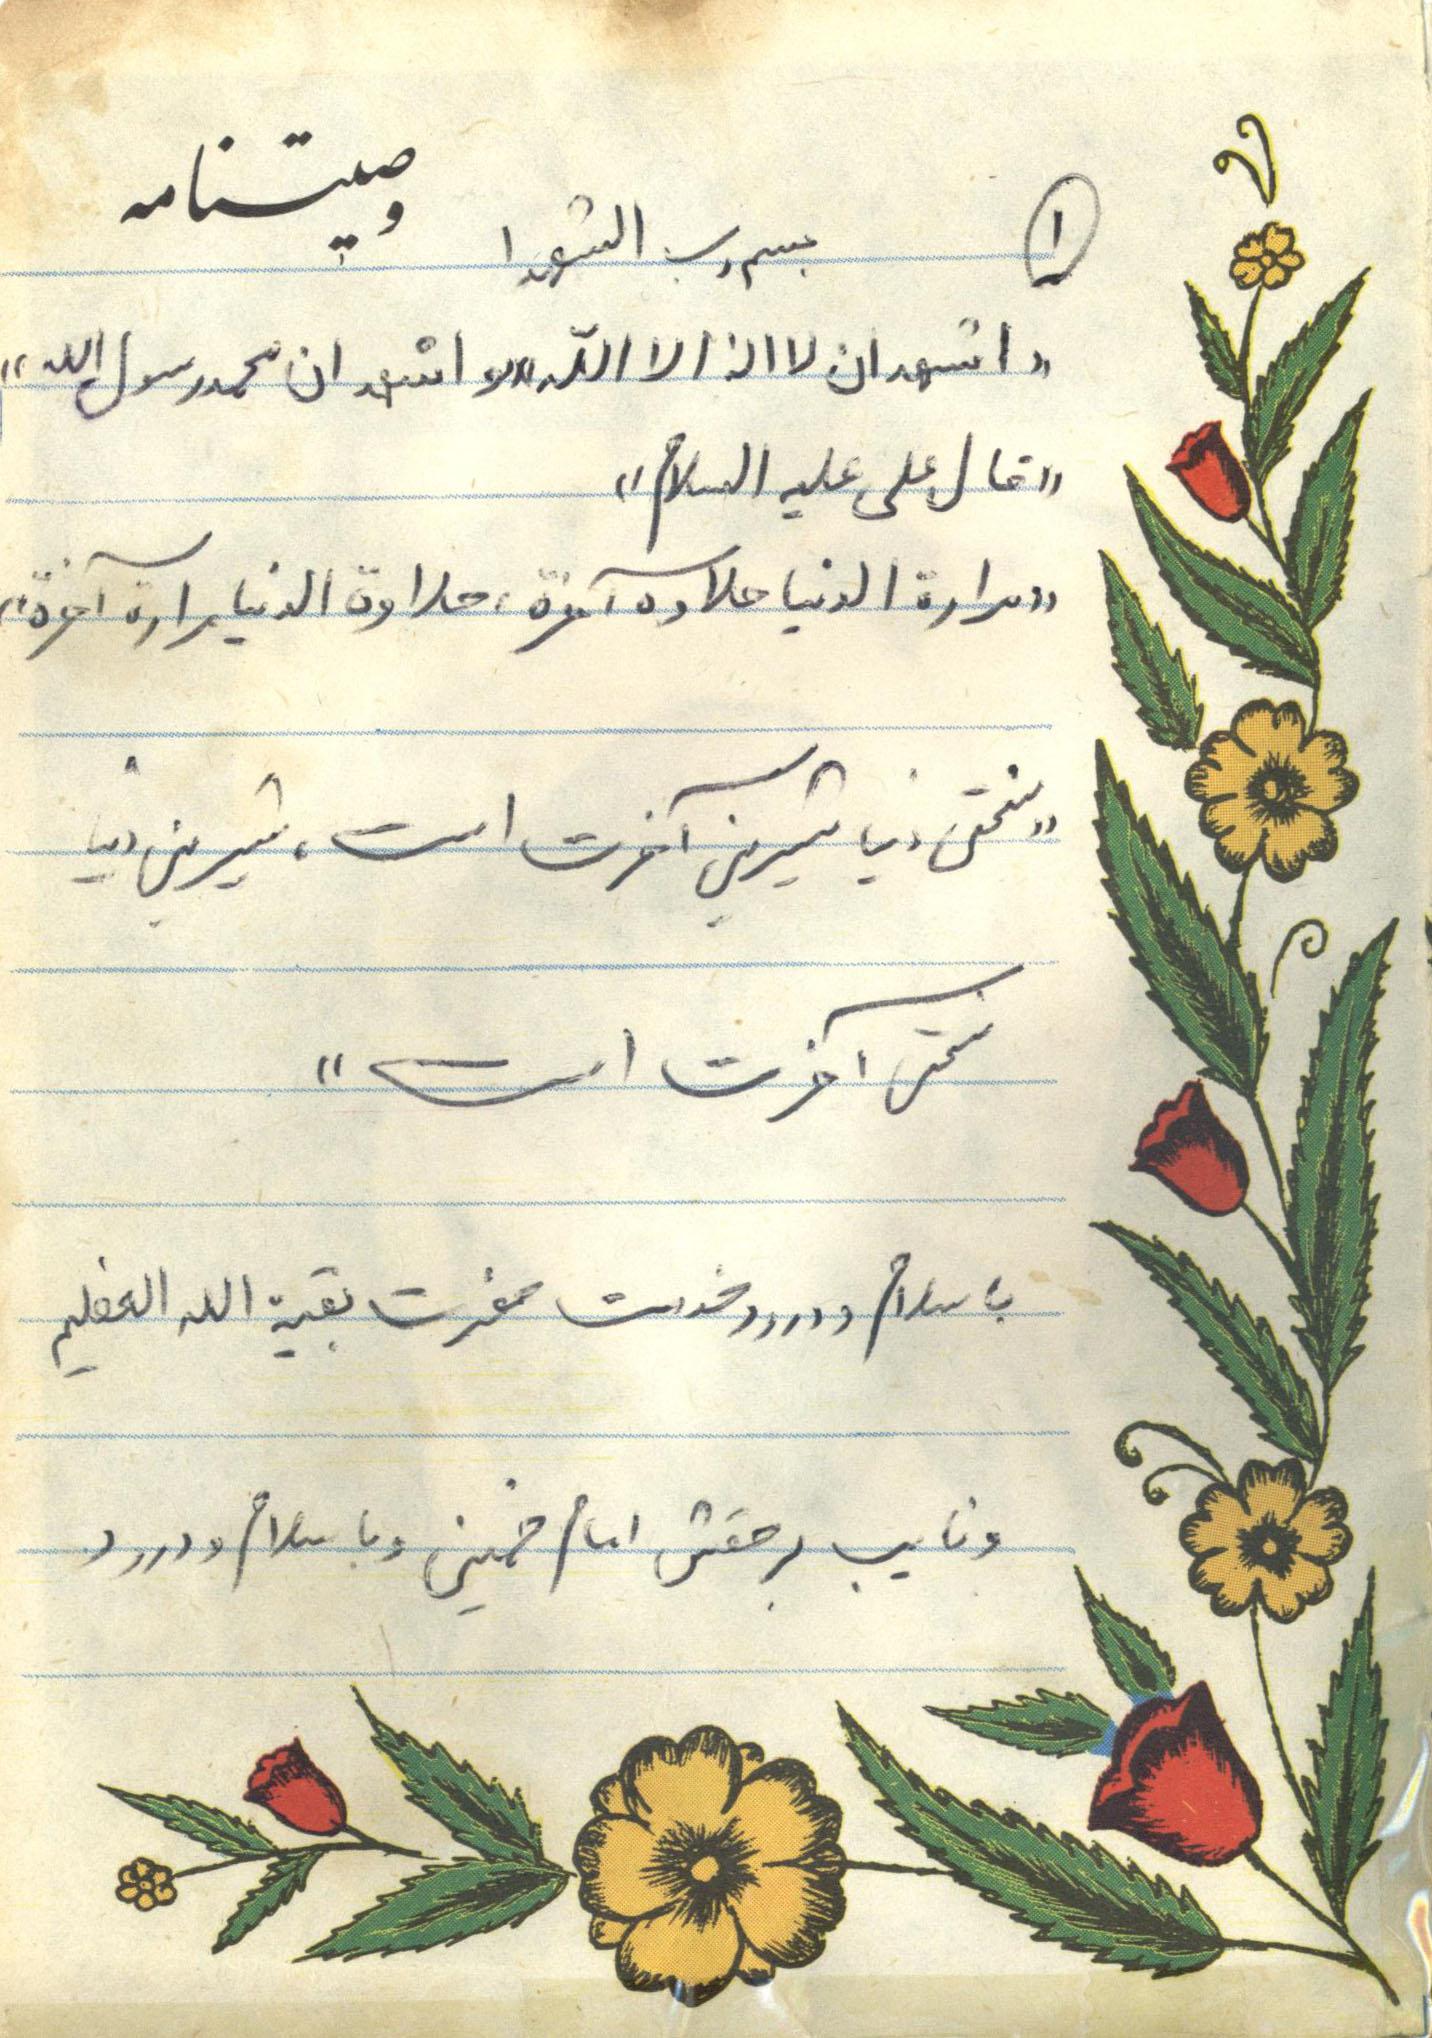 وصیتنامه
۱
بسم رب الشهدا
«اشهد ان لا اله الا الله» «و اشهد ان محمد رسول الله»
«قال علی علیه السلام»
«مرارة الدنیا حلاوه آخرة، حلاوة الدنیا مرارة آخرة»
«سختی دنیا شیرینی آخرت است، شیرینی دنیا
سختی آخرت است»
با سلام و درود خدمت حضرت بقیة الله العظیم
و نایب برحقش امام خمینی و با سلام و درود